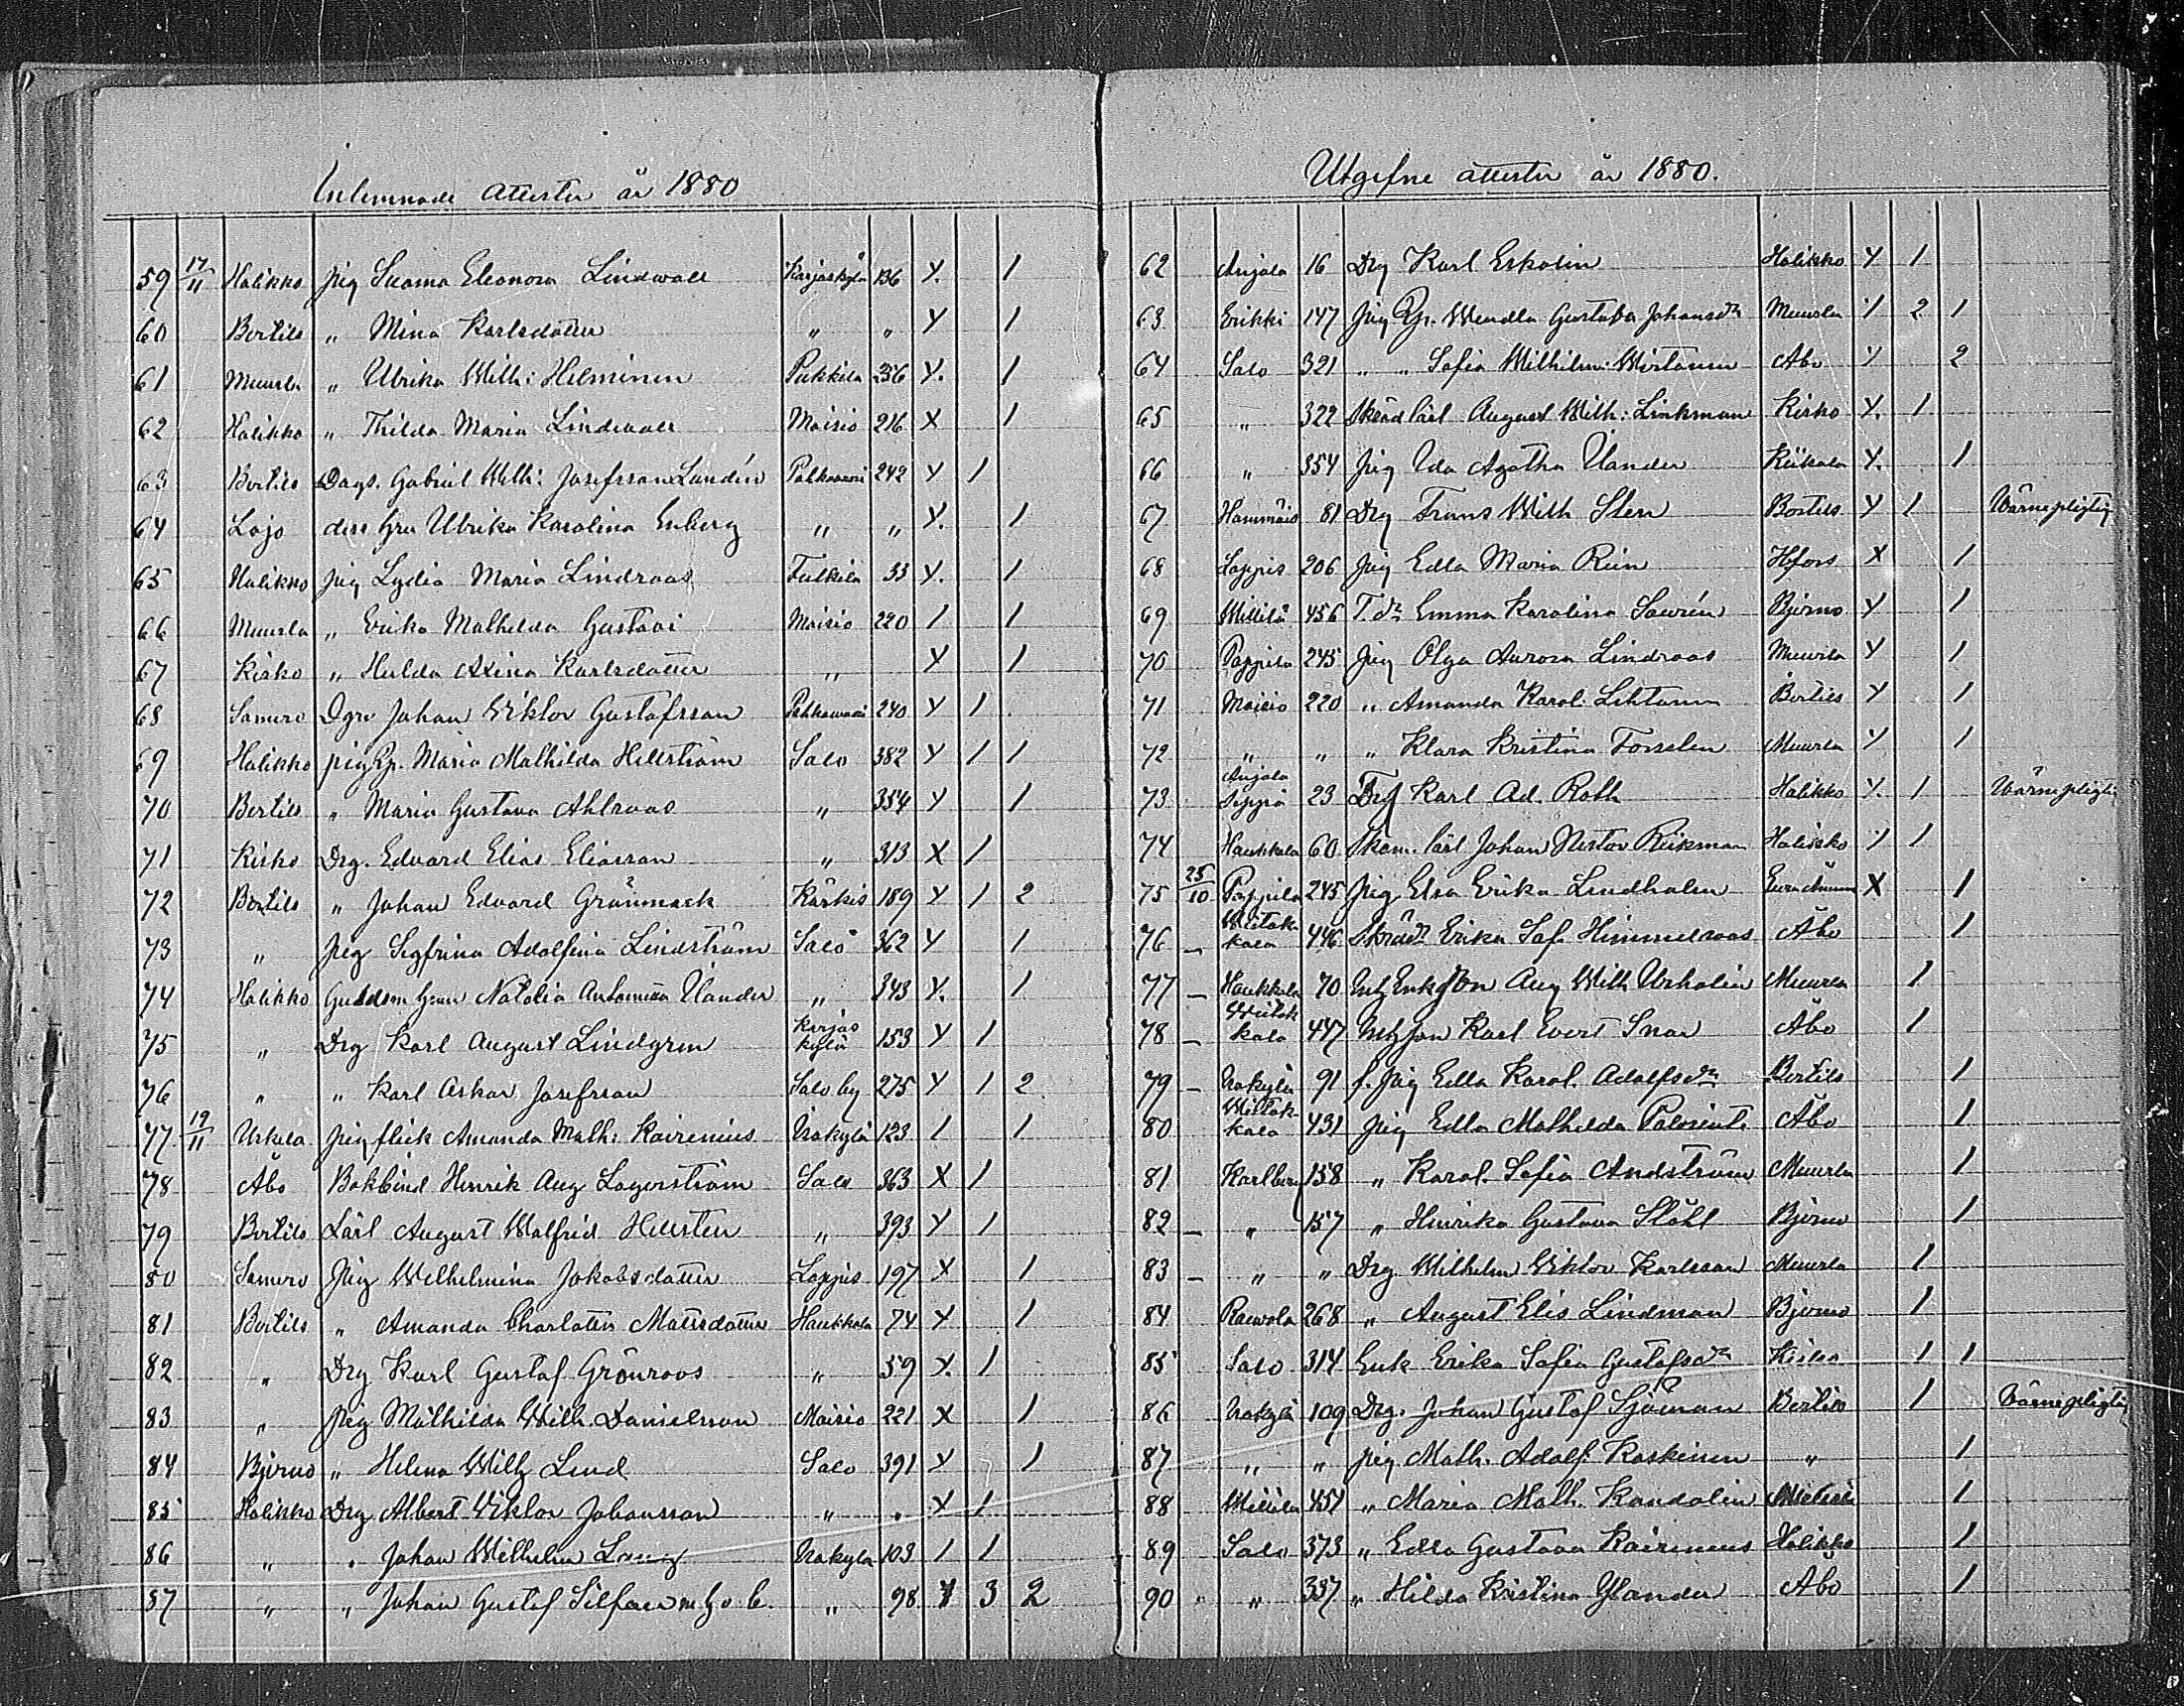 Inlemnade attester år 1880
59 17/11 Halikko pig Suoma Eleonora Lindwall Karjaskylä 136 X. 1
60 Bertils " Mina Karlsdotter " " X 1
61 Muurla " Ulrika Wilh: Helminen Pukkila 236 X. 1
62 Halikko " Thilda Maria Lindwall Moisio 216 X 1
63 Bertils Dags. Gabriel Wilh: Josefsson Lundén Pahkavuori 242 X 1
64 Lojo dess hru Ulrika Karolina Enberg " " X. 1
65 Halikko pig Lydia Maria Lindroos 33 X. 1
66 Muurla " Erika Mathilda Gustavi Moisio 220 1 1
67 Kisko " Hulda Axina Karlsdotter " X 1
68 Somero Dgr Johan Viktor Gustafsson 240 X 1
69 Halikko pig Maria Mathilda Hellström Salo 382 X 1 1
70 Bertils " Maria Gustava Ahlroos " 354 X 1
71 Kisko Drg. Edvard Elias Eliasson " 313 X 1
72 Bertils " Johan Edvard Grönmark Kärkis 189 X 1 2
73 " pig Sigfrina Adolfina Lindström Salo 362 X 1
74 Halikko Guldsm hrun Natalia Ulander " 343 X. 1
75 " Drg Karl August Lindgren Karjas kylä 153 X 1
76 " " Karl Oskar Josefsson Salo by 275 X 1 2
77 19/11 Uskela pig flick Amanda Math: Kairenius Isokylä 123 1 1
78 Åbo Bokbind Henrik Aug Lagerström Salo 363 X 1
79 Bertils Lärl August Walfrid Hellsten " 393 X 1
80 Somero pig Wilhelmina Jakobsdotter Loppis 197 X 1
81 Bertils " Amanda Charlotta Matsdotter Haukkala 74 X 1
82 " Drg Karl Gustaf Grönroos " 59 X. 1
83 " pig Mathilda Wilh. Danielsson Moisio 221 X 1
84 Bjerno " Helena Wilh Lind Salo 391 X 1
85 Halikko Drg Albert Viktor Johansson " . X 1
86 " " Johan Wilhelm Isokylä 103 1 1
87 " " Johan Gustaf Silfver m h o b. " 98 X 3 2
Utgifne attester år 1880.
62 Anjala 16 Drg Karl Eskolin Halikko X 1
63 Erikki 147 pig Wendla Gustava Johansdr Muurla X 2 1
64 Salo 321 " " Sofia Wilhelm: Wirtanen Åbo X 2
65 " 322 Skräd lärl August Wilh: Linkman Kisko X. 1
66 " 354 pig Ida Agatha Ulander Kiikala X. 1
67 Hammäis 81 Drg Frans Wilh Sten Bertils X 1 Värnepligtig
68 Loppis 206 pig Edla Maria Hfors X 1
69 Millilä 456 T. dr Emma Karolina Saurén Bjerno X 1
70 Pappila 245 pig Olga Aurora Lindroos Muurla X 1
71 Moisio 220 " Amanda Karol: Lehtonen Bertils X 1
72 " " " Klara Kristina Forsslin Muurla X 1
73 Anjala 23 Drg Karl Ad. Roth Halikko X. 1 Värnepligtig
74 Haukkala 60 Skom. lärl Johan Nestor Riikman Halikko 1 1
75 25/10 Pappila 245 pig Elsa Erika Lindholm X 1
76 — kala 446 Erika Sof. Himmelroos Åbo 1
77 — Haukkala 70 Aug Wilh Urholin Muurla 1
78 — kala 447 Karl Evert Snar Åbo 1
79 — Isokylä 91 f. pig Edla Karol. Adolfsdr Bertils 1
80 kala 431 pig Edla Mathilda Åbo 1
81 Karlberg 158 " Karol. Sofia Andström Muurla 1
82 — " 157 " Henrika Gustava Ståhl Bjerno 1
83 — " " Drg Wilhelm Viktor Karlsson Muurla 1
84 268 " August Elis Lindman Bjerno 1
85 Salo 314 Enk Erika Sofia Gustafsdr 1 1
86 Isokylä 109 Drg. Johan Gustaf Sjöman Bertils 1 Värnepligtig
87 " " pig Math. Adolf. Koskinen " 1
88 Millilä 451 " Maria Math. Kandolin 1
89 Salo 373 " Edla Gustava Kairenius Halikko 1
90 " " 337 " Hilda Kristina Ylander Åbo 1